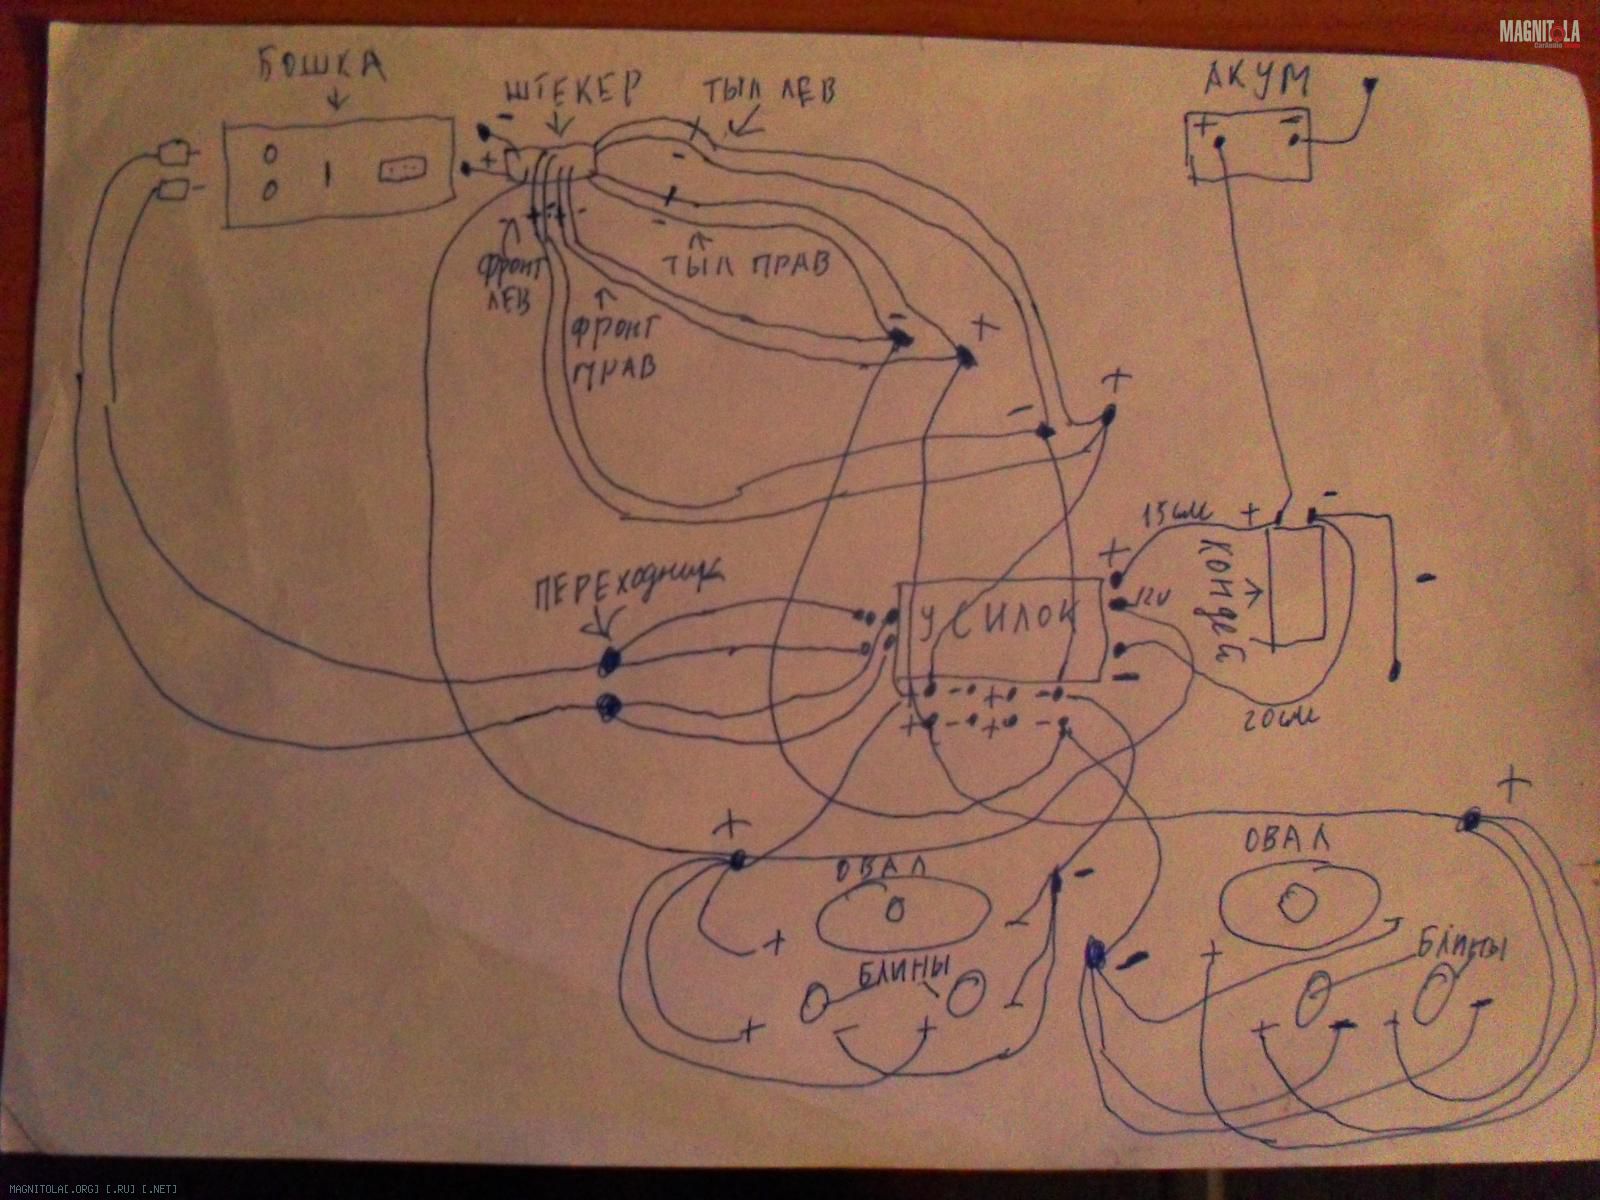 MAGNITOLA
CarAudio
БОШКА
ШТЕКЕР
ТЫЛ ЛЕВ
АКУМ
+ -
-
+
+
-
+
-
+ - + -
ФРОНТ
ЛЕВ
ТЫЛ ПРАВ
ФРОНТ
ПРАВ
- +
- +
15см + -
КОНДЕЙ
-
ПЕРЕХОДНИК
+
12V
УСИЛОК
-
+ - + -
+ - + -
20см
+
+
ОВАЛ
-
ОВАЛ
+
БЛИНЫ
-
+
БЛИНЫ
+ - +
+ - + -
MAGNITOLA[.ORG] [.RU] [.NET]